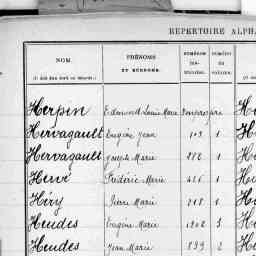 RÉPERTOIRE ALPHA
NOM. PRÉNOMS ET SURNOMS. NUMÉROS MATRICULES. NUMÉRO DU VOLUME.
Herpin Edmond Louis Marie
Hervagault Eugène Jean 103 1
Hervagault Joseph Marie 282 1
Hervé Frédéric Marie 426 1
Héry Pierre Marie 218 1
Heudes Eugène Marie 1202 3
Heudes Jean Marie 839 2